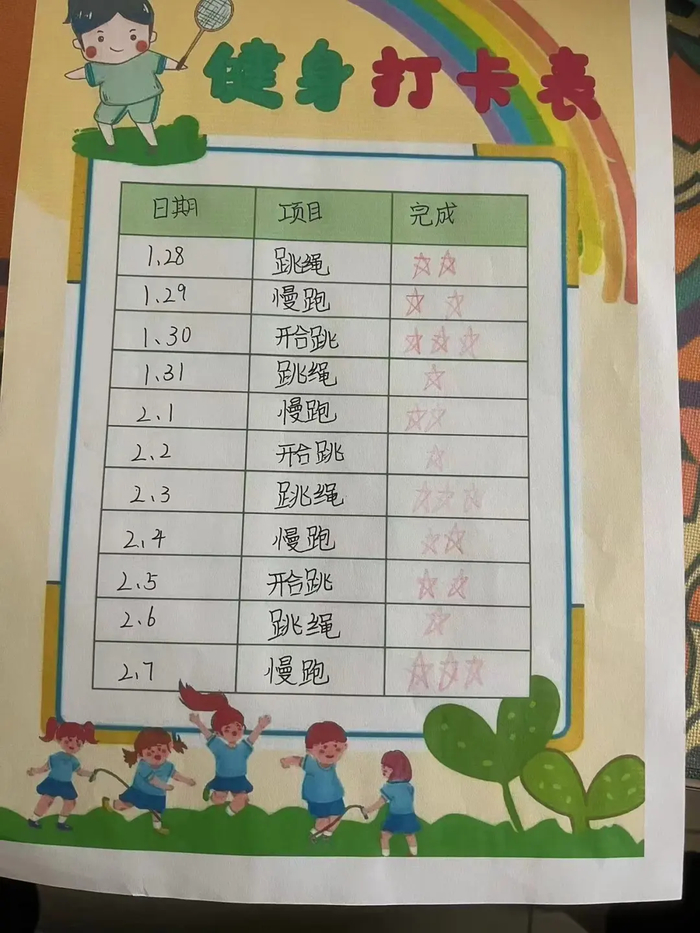 健身打卡表
日期 项目 完成
1.28 跳绳 ☆☆
1.29 慢跑 ☆☆
1.30 开合跳 ☆☆☆
1.31 跳绳 ☆
2.1 慢跑 ☆☆
2.2 开合跳 ☆
2.3 跳绳 ☆☆☆
2.4 慢跑 ☆☆
2.5 开合跳 ☆☆
2.6 跳绳 ☆
2.7 慢跑 ☆☆☆